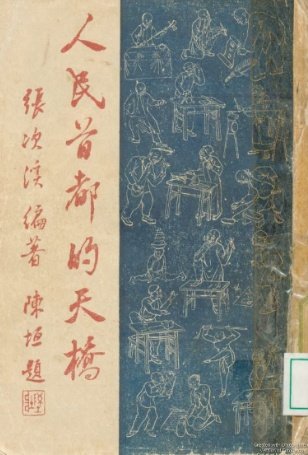 人民首都的天橋
張次溪編著
陳垣題